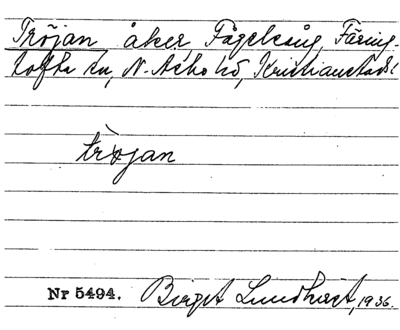 Tröjan åker, Fågelsång, Färing-
tofta sn, N. Åsbo hd, Kristianstads l
tròjan
Nr 5494. Birgit Lundkvist, 1936.